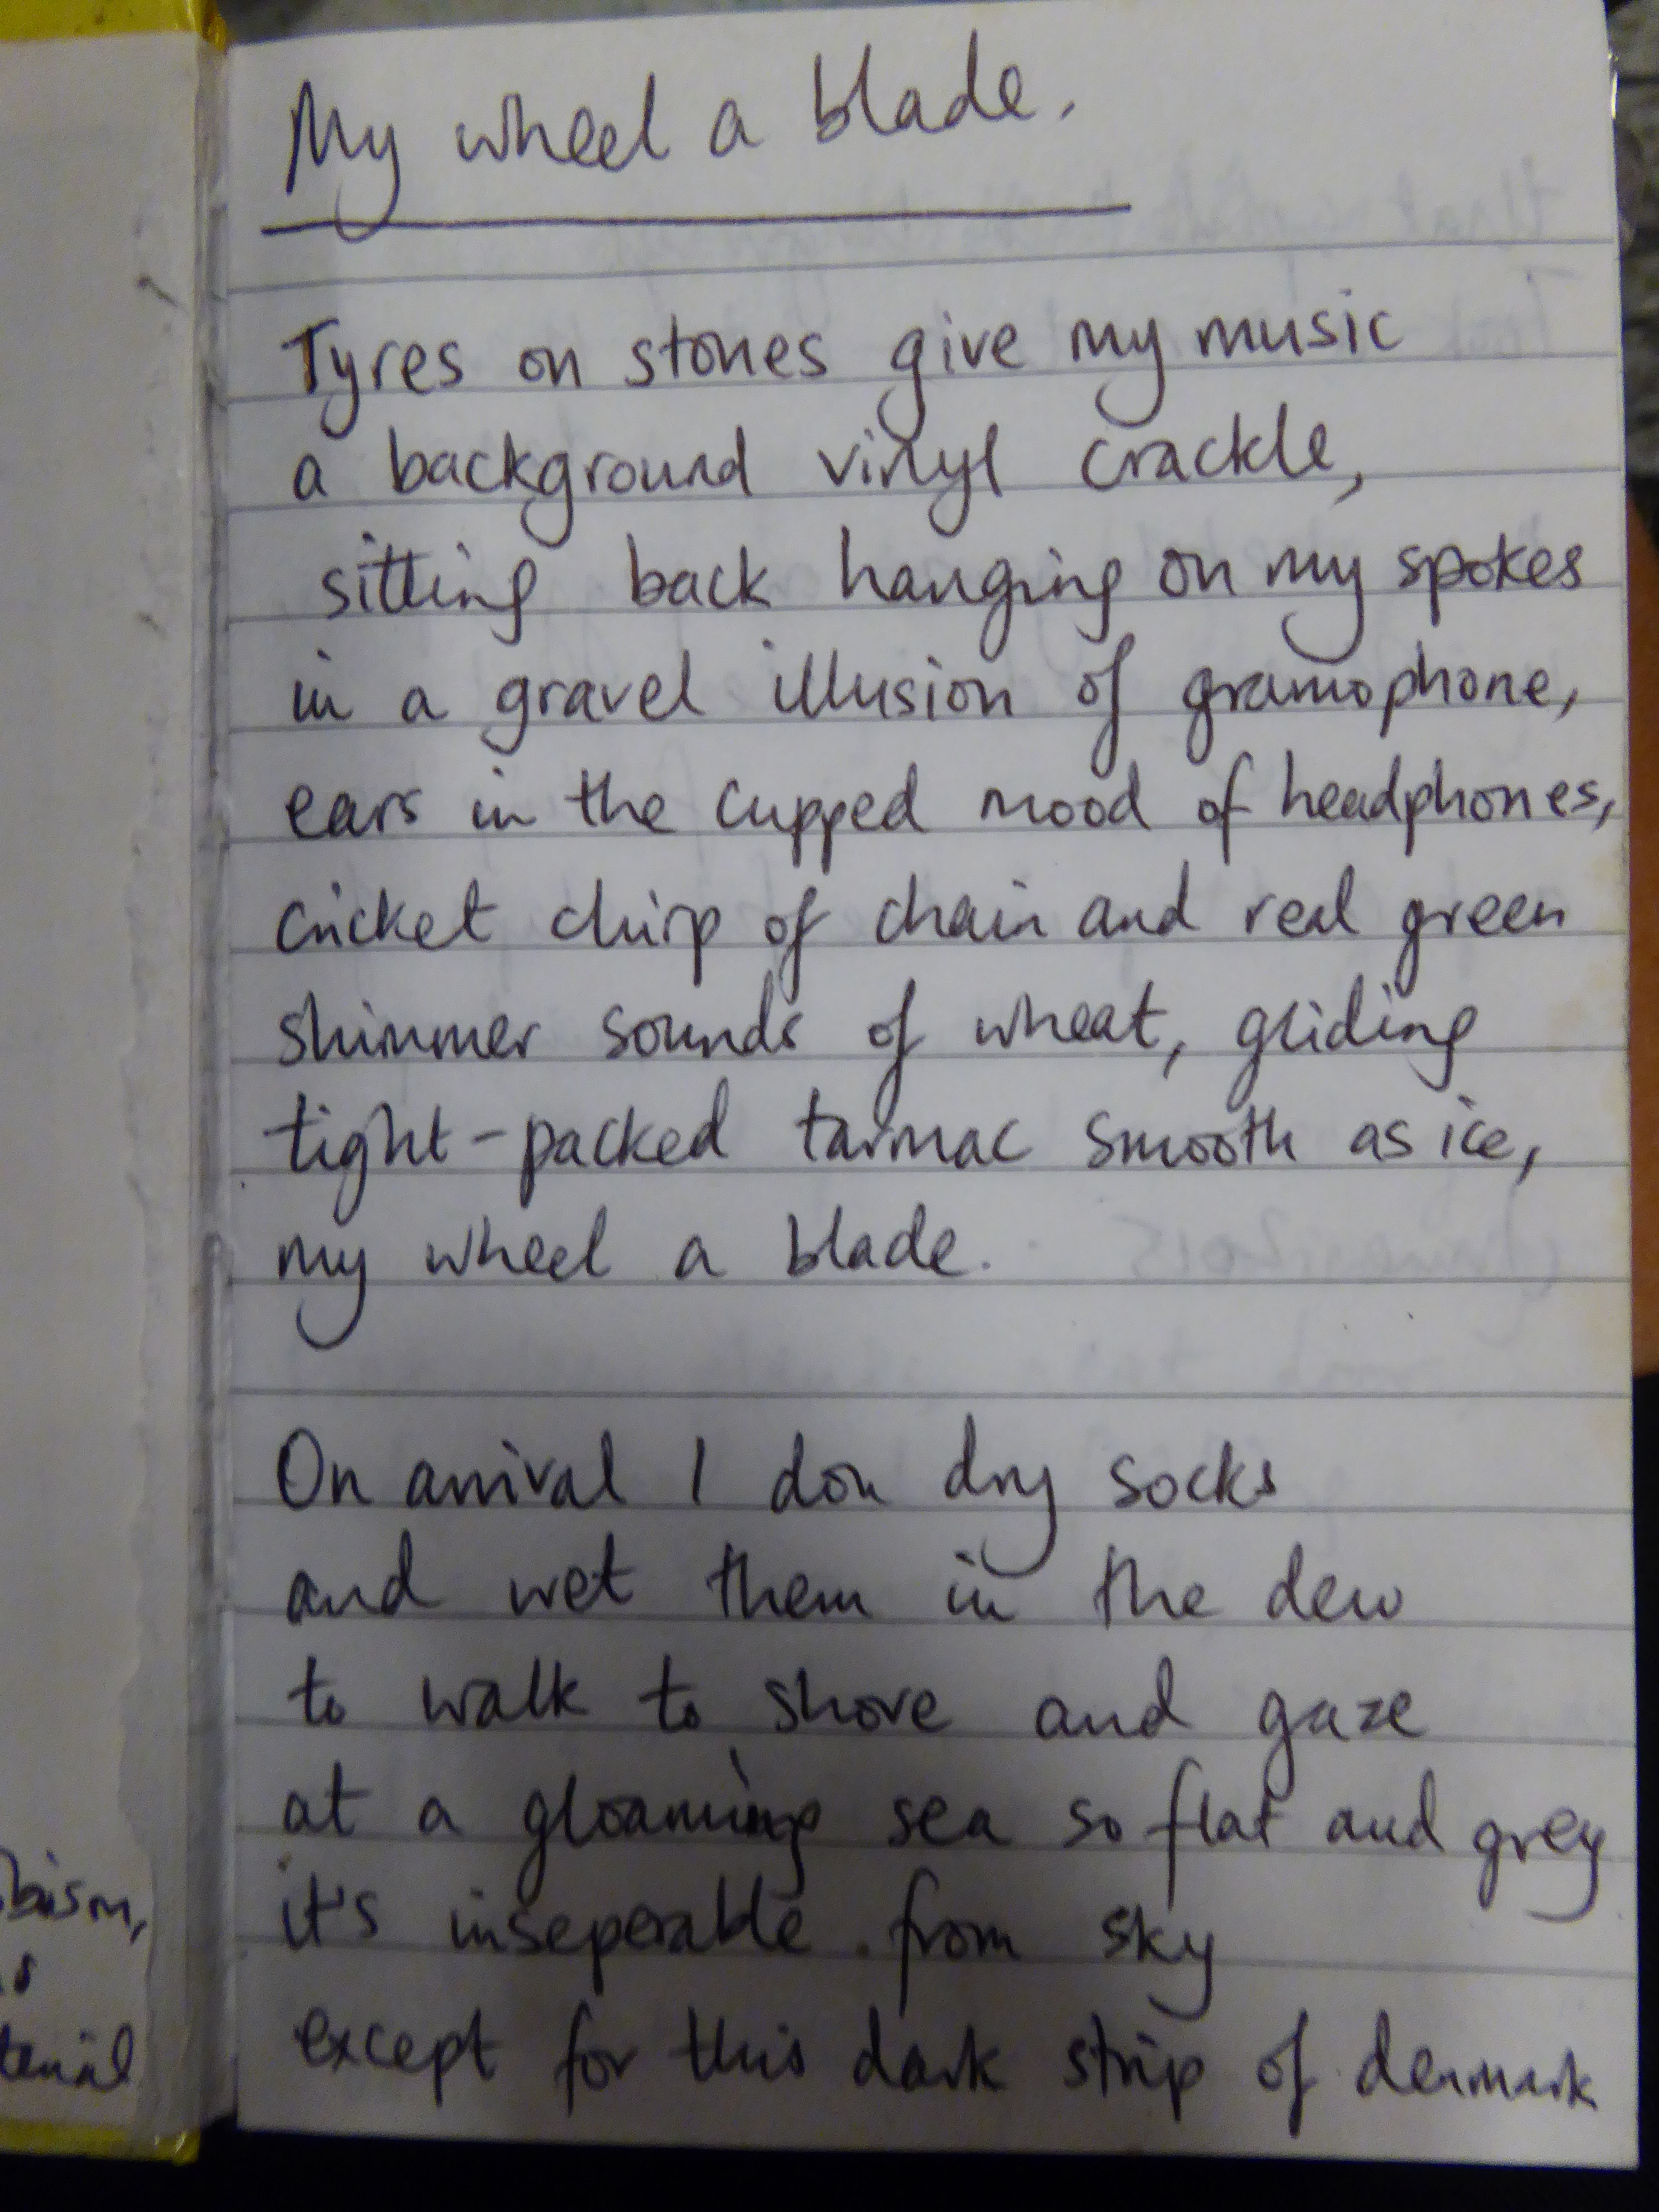 My wheel a blade.
Tyres on stones give my music
a background vinyl crackle,
sitting back hanging on my spokes
in a gravel illusion of gramophone,
ears in the cupped mood of headphones,
cricket chirp of chain and real green
shimmer sounds of wheat, gliding
tight-packed tarmac smooth as ice,
my wheel a blade.
On arrival I don dry socks
and wet them in the dew
to walk to shore and gaze
at a gloaming sea so flat and grey
it's inseperable from sky
except for this dark strip of denmark